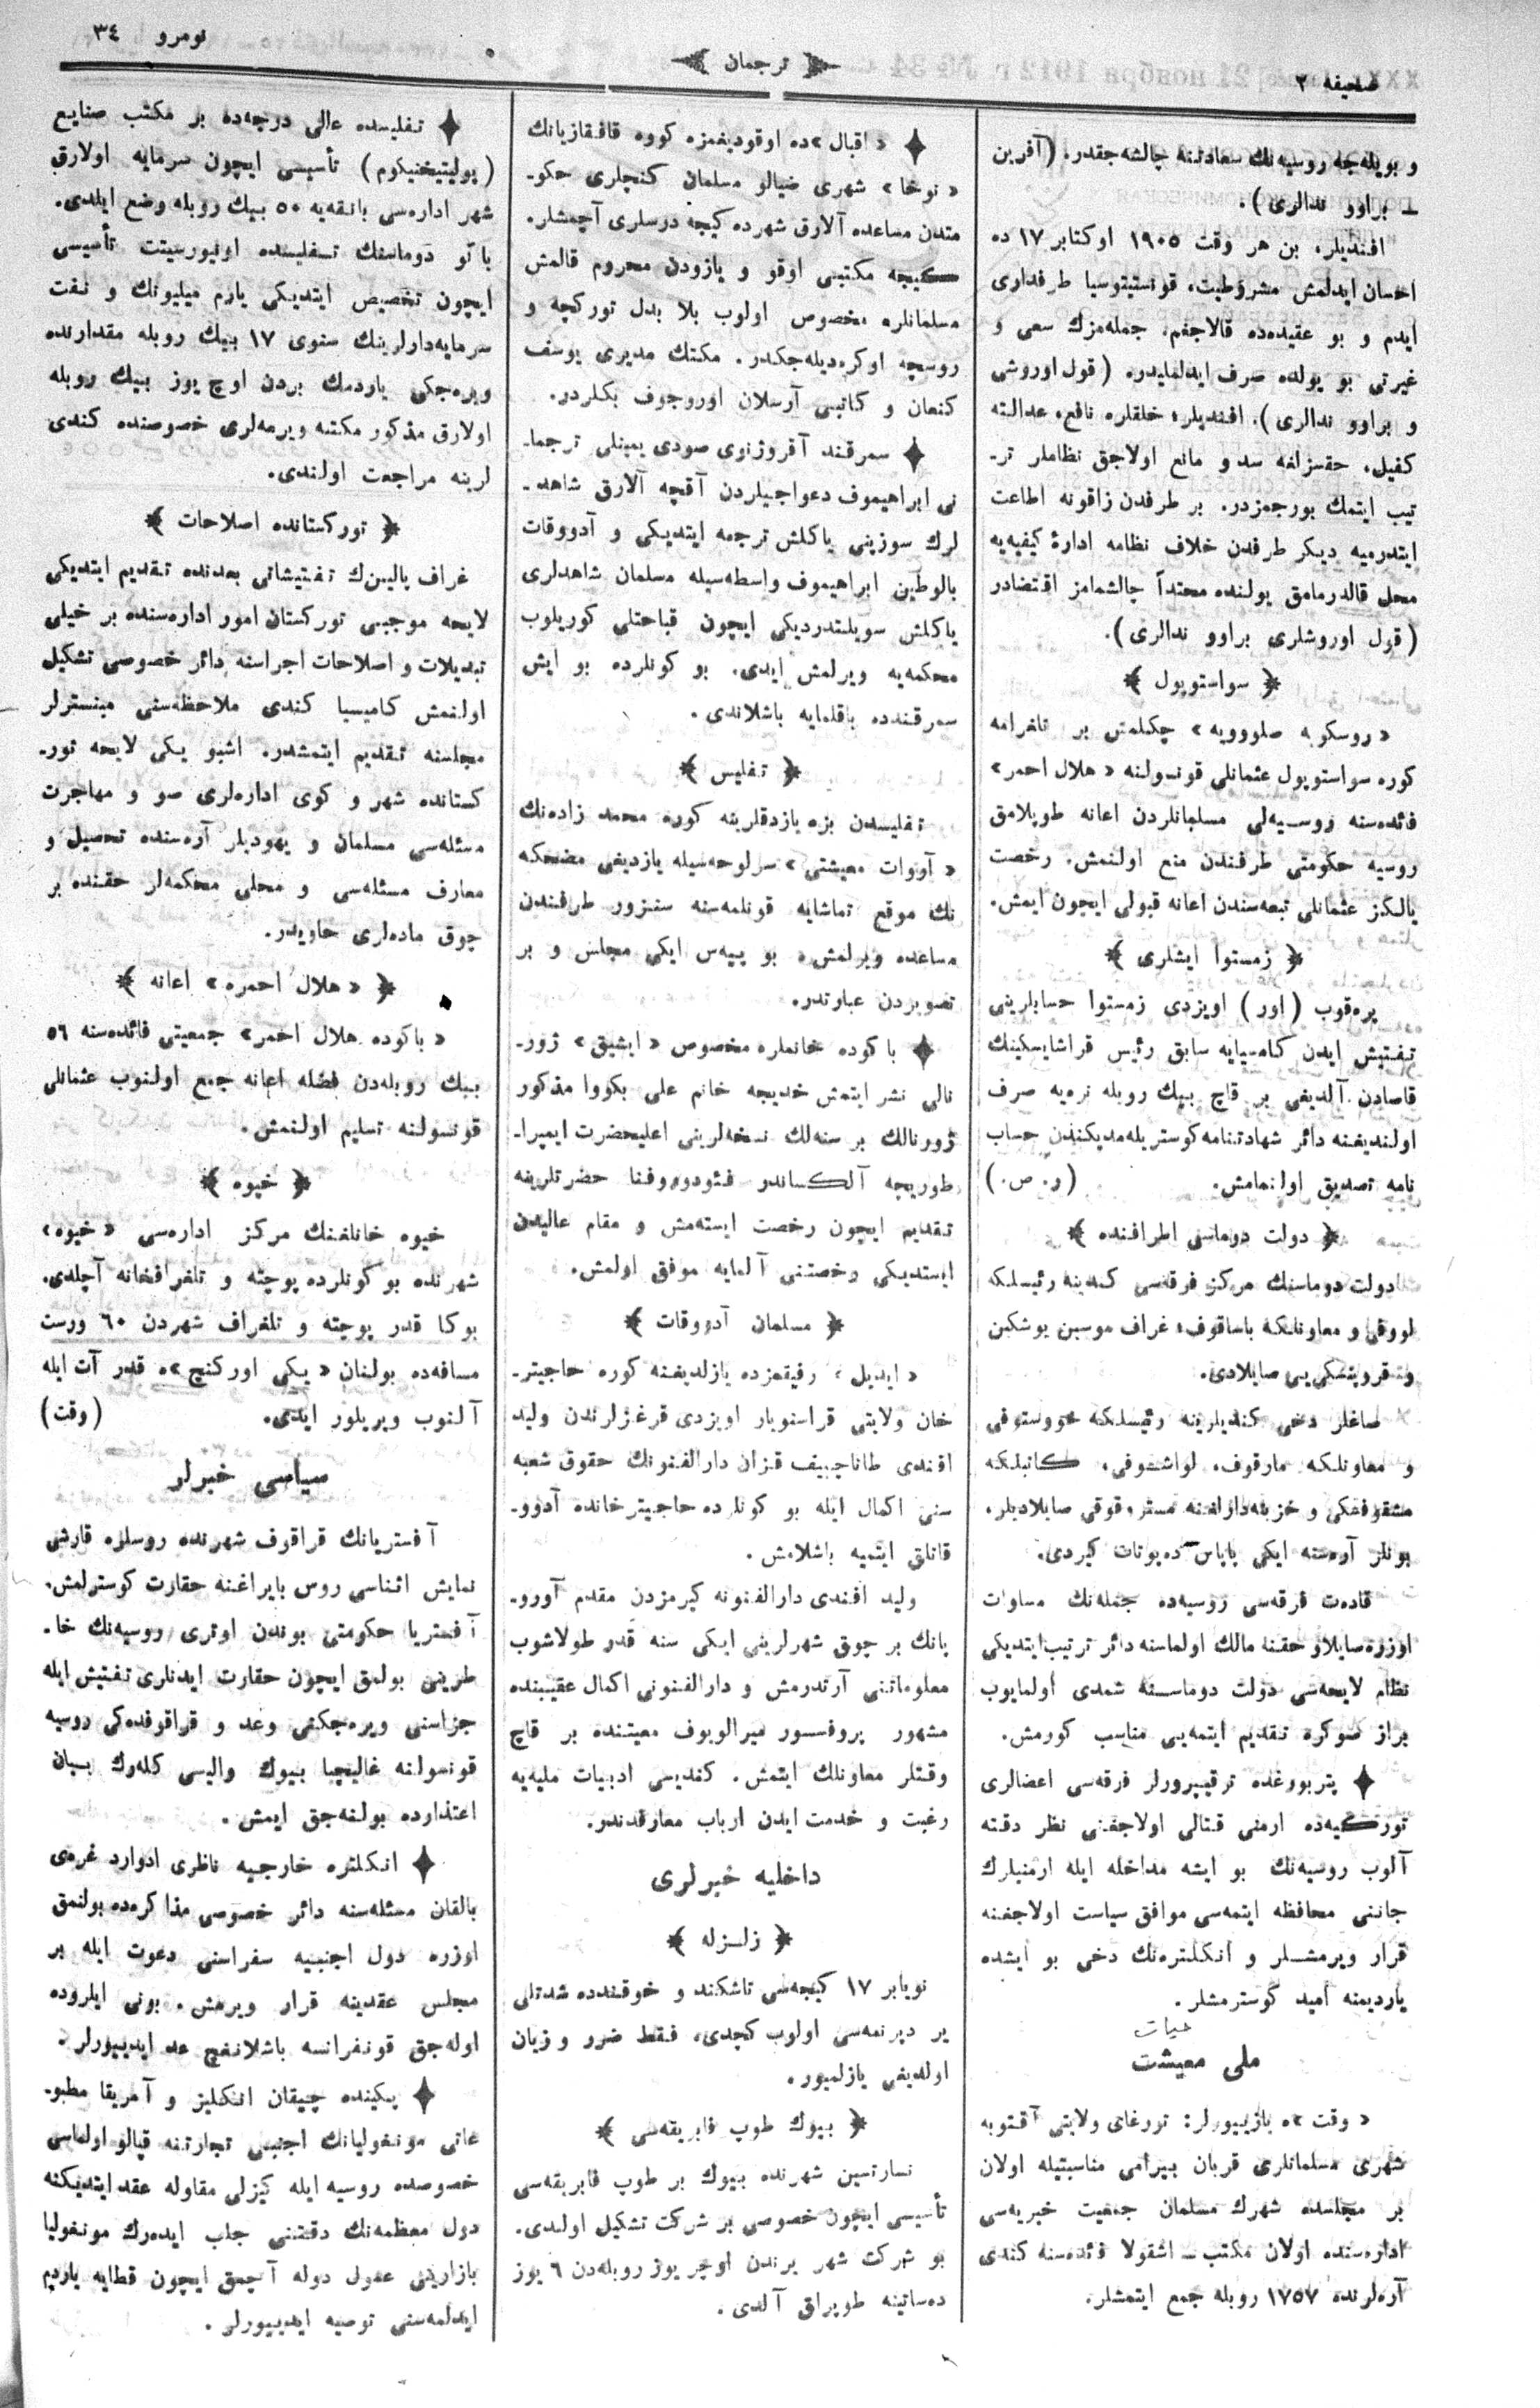 صحیفه ۲
ترجمان
نومرو ٣٤
و بویله‌جه روسیه‌نك سعادتنه چالشه‌جقدر. (آفرین
ـ براوو ندالری).
افندیلر، بن هر وقت ۱۹۰٥ اوكتابر ۱۷ ده
احسان ایدلمش مشروطیت، قونستیتوسیا طرفداری
ایدم و بو عقیده‌ده قالاجغم. جمله‌مزك سعی و
غیرتی بو یولده صرف ایدلملیدر. (قول اوروشی
و براوو ندالری). افندیلر، خلقلره نافع، عدالته
كفیل، حقسزلغه سد و مانع اولاجق نظاملر تر-
تیب ایتمك بورجمزدر. بر طرفدن زاقونه اطاعت
ایتدرمیه دیكر طرفدن خلاف نظامه ادارۀ كیفیه‌یه
محل قالدرمامق یولنده متحداً چالشمامز اقتضادر
(قول اوروشلری براوو ندالری).
﴿ سواستوپول ﴾
«روسكویه صلوویه» چكلمش بر تلغرامه
كوره سواستوپول عثمانلی قونسولنه «هلال احمر»
فائده‌سنه روسیه‌لی مسلمانلردن اعانه طوپلامق
روسیه حكومتی طرفندن منع اولنمش. رخصت
یالكز عثمانلی تبعه‌سندن اعانه قبولی ایچون ایمش.
﴿ زمستوا ایشلری ﴾
پره‌قوب (اور) اویزدی زمستوا حسابلرینی
تفتیش ایدن كامیسیایه سابق رئیس قراشایسكینك
قاصادن آلدیغی بر قاچ بیك روبله نره‌یه صرف
اولندیغنه دائر شهادتنامه كوستریله‌مدیكندن حساب
نامه تصدیق اولنمامش. (ر. ص.)
﴿ دولت دوماسی اطرافنده ﴾
دولت دوماسنك مركز فرقه‌سی كندینه رئیسلكه
لووفی و معاونلكه باساقوف، غراف موسین پوشكین
و قروپنسكی‌یی صایلادی.
صاغلر دخی كندیلرینه رئیسلكه خووستوفی
و معاونلكه مارقوف، لواشوفی، كاتبلكه
و خزینه‌دارلغنه صایلادیلر.
بونلر آره‌سنه ایكی پاپاس ده‌پوتات كیردی.
قاده‌ت فرقه‌سی روسیه‌ده جمله‌نك مساوات
اوزره صایلاو حقنه مالك اولماسنه دائر ترتیب ایتدیكی
نظام لایحه‌سی دولت دوماسنه شمدی اولمایوب
براز صوكره تقدیم ایتمه‌یی مناسب كورمش.
✦ پتربورغده ترقیپرورلر فرقه‌سی اعضالری
توركیه‌ده ارمنی قتالی اولاجغنی نظر دقته
آلوب روسیه‌نك بو ایشه مداخله ایله ارمنیلرك
جاننی محافظه ایتمه‌سی موافق سیاست اولاجغنه
قرار ویرمشلر و انكلتره‌نك دخی بو ایشده
یاردیمنه امید گوسترمشلر.
حیات
ملی معیشت
«وقت»ه یازییورلر: تورغای ولایتی آقتوبه
شهری مسلمانلری قربان بیرامی مناسبتیله اولان
بر مجلسده شهرك مسلمان جمعیت خیریه‌سی
اداره‌سنده اولان مكتب ـ اشقولا فائده‌سنه كندی
آره‌لرنده ۱۷٥۷ روبله جمع ایتمشلر.
✦ «اقبال»ده اوقودیغمزه كوره قافقازیانك
«نوخا» شهری ضیالو مسلمان كنجلری حكو-
متدن مساعده آلارق شهرده كیجه درسلری آچمشلر.
كیجه مكتبی اوقو و یازودن محروم قالمش
مسلمانلره مخصوص اولوب بلا بدل توركچه و
روسچه اوكره‌دیله‌جكدر. مكتبك مدیری یوسف
كنعان و كاتبی آرسلان اوروجوف بكلردر.
✦ سمرقند آقروژنوی صودی یمینلی ترجما-
نی ابراهیموف دعواجیلردن آقچه آلارق شاهد-
لرك سوزینی یاكلش ترجمه ایتدیكی و آدووقات
بالوطین ابراهیموف واسطه‌سیله مسلمان شاهدلری
یاكلش سویلتدردیكی ایچون قباحتلی كوریلوب
محكمه‌یه ویرلمش ایدی. بو كونلرده بو ایش
سمرقندده باقلمایه باشلاندی.
﴿ تفلیس ﴾
تفلیسدن بزه یازدقلرینه كوره محمد زاده‌نك
«آووات معیشتی» سرلوحه‌سیله یازدیغی مضحكه
نك موقع تماشایه قونلمه‌سنه سنزور طرفندن
مساعده ویرلمش. بو پیه‌س ایكی مجلس و بر
تصویردن عبارتدر.
✦ باكوده خانملره مخصوص «ایشیق» ژور-
نالی نشر ایتمش خدیجه خانم علی بكووا مذكور
ژورنالك بر سنه‌لك نسخه‌لرینی اعلیحضرت ایمپرا-
طوریچه آلكساندر فئودوروفنا حضرتلرینه
تقدیم ایچون رخصت ایسته‌مش و مقام عالیدن
ایستدیكی رخصتنی آلمایه موفق اولمش.
﴿ مسلمان آدووقات ﴾
«ایدیل» رفیقمزده یازلدیغنه كوره حاجیتر-
خان ولایتی قراسنویار اویزدی قرغزلرندن ولید
افندی طاناچییف قزان دارالفنونك حقوق شعبه
سنی اكمال ایله بو كونلرده حاجیترخانده آدوو-
قاتلق ایتمیه باشلامش.
ولید افندی دارالفنونه كیرمزدن مقدم آورو-
پانك بر چوق شهرلرینی ایكی سنه قدر طولاشوب
معلوماتنی آرتدرمش و دارالفنونی اكمال عقیبنده
مشهور پروفسسور میرالوبوف معیتنده بر قاچ
وقتلر معاونلك ایتمش. كندیسی ادبیات ملیه‌یه
رغبت و خدمت ایدن ارباب معارفدندر.
داخلیه خبرلری
﴿ زلزله ﴾
نویابر ۱۷ كیجه‌سی تاشكند و خوقندده شدتلی
یر دپرنمه‌سی اولوب كچدی، فقط ضرر و زیان
اولدیغی یازلمیور.
﴿ بیوك طوپ فابریقه‌سی ﴾
تسارتسین شهرنده بیوك بر طوپ فابریقه‌سی
تأسیسی ایچون خصوصی بر شركت تشكیل اولندی.
بو شركت شهر یرندن اوچر یوز روبله‌دن ٦ یوز
ده‌ساتینه طوپراق آلدی.
✦ تفلیسده عالی درجه‌ده بر مكتب صنایع
(پولیتیخنیكوم) تأسیسی ایچون سرمایه اولارق
شهر اداره‌سی بانقه‌یه ٥۰ بیك روبله وضع ایلدی.
باكو دوماسنك تفلیسده اونیورسیتت تأسیسی
ایچون تخصیص ایتدیكی یارم میلیونك و نفت
سرمایه‌دارلرینك سنوی ۱۷ بیك روبله مقدارنده
ویره‌جكی یاردمك بردن اوچ یوز بیك روبله
اولارق مذكور مكتبه ویرمه‌لری خصوصنده كندی
لرینه مراجعت اولندی.
﴿ توركستانده اصلاحات ﴾
غراف پالین‌ك تفتیشاتی بعدنده تقدیم ایتدیكی
لایحه موجبی توركستان امور اداره‌سنده بر خیلی
تبدیلات و اصلاحات اجراسنه دائر خصوصی تشكیل
اولنمش كامیسیا كندی ملاحظه‌سنی مینسترلر
مجلسنه تقدیم ایتمشدر. اشبو یكی لایحه تور-
كستانده شهر و كوی اداره‌لری صو و مهاجرت
مسئله‌سی مسلمان و یهودیلر آره‌سنده تحصیل و
معارف مسئله‌سی و محلی محكمه‌لر حقنده بر
چوق ماده‌لری حاویدر.
﴿ «هلال احمره» اعانه ﴾
«باكوده هلال احمر» جمعیتی فائده‌سنه ٥٦
بیك روبله‌دن فضله اعانه جمع اولنوب عثمانلی
قونسولنه تسلیم اولنمش.
﴿ خیوه ﴾
خیوه خانلغنك مركز اداره‌سی «خیوه»
شهرنده بو كونلرده پوچته و تلغرافخانه آچلدی.
بوكا قدر پوچته و تلغراف شهردن ٦۰ ورست
مسافه‌ده بولنان «یكی اوركنچ»ه قدر آت ایله
آلنوب ویریلور ایدی. (وقت)
سیاسی خبرلر
آفستریانك قراقوف شهرنده روسلره قارشی
نمایش اثناسی روس بایراغنه حقارت كوسترلمش.
آفستریا حكومتی بوندن اوتری روسیه‌نك خا-
طرینی بولمق ایچون حقارت ایدنلری تفتیش ایله
جزاسنی ویره‌جكنی وعد و قراقوفده‌كی روسیه
قونسولنه غالیچیا بیوك والیسی كله‌رك بیان
اعتذارده بولنه‌جق ایمش.
✦ انكلتره خارجیه ناظری ادوارد غره‌ی
بالقان مسئله‌سنه دائر خصوصی مذاكره‌ده بولنمق
اوزره دول اجنبیه سفراسنی دعوت ایله بر
مجلس عقدینه قرار ویرمش. بونی ایلروده
اوله‌جق قونفرانسه باشلانغچ عد ایدییورلر.
✦ پكینده چیقان انكلیز و آمریقا مطبو-
عاتی مونغولیانك اجنبی تجارتنه قپالو اولماسی
خصوصده روسیه ایله كیزلی مقاوله عقد ایتدیكنه
دول معظمه‌نك دقتنی جلب ایده‌رك مونغولیا
بازارینی عموم دوله آچمق ایچون قطایه یاردم
ایدلمه‌سنی توصیه ایدییورلر.